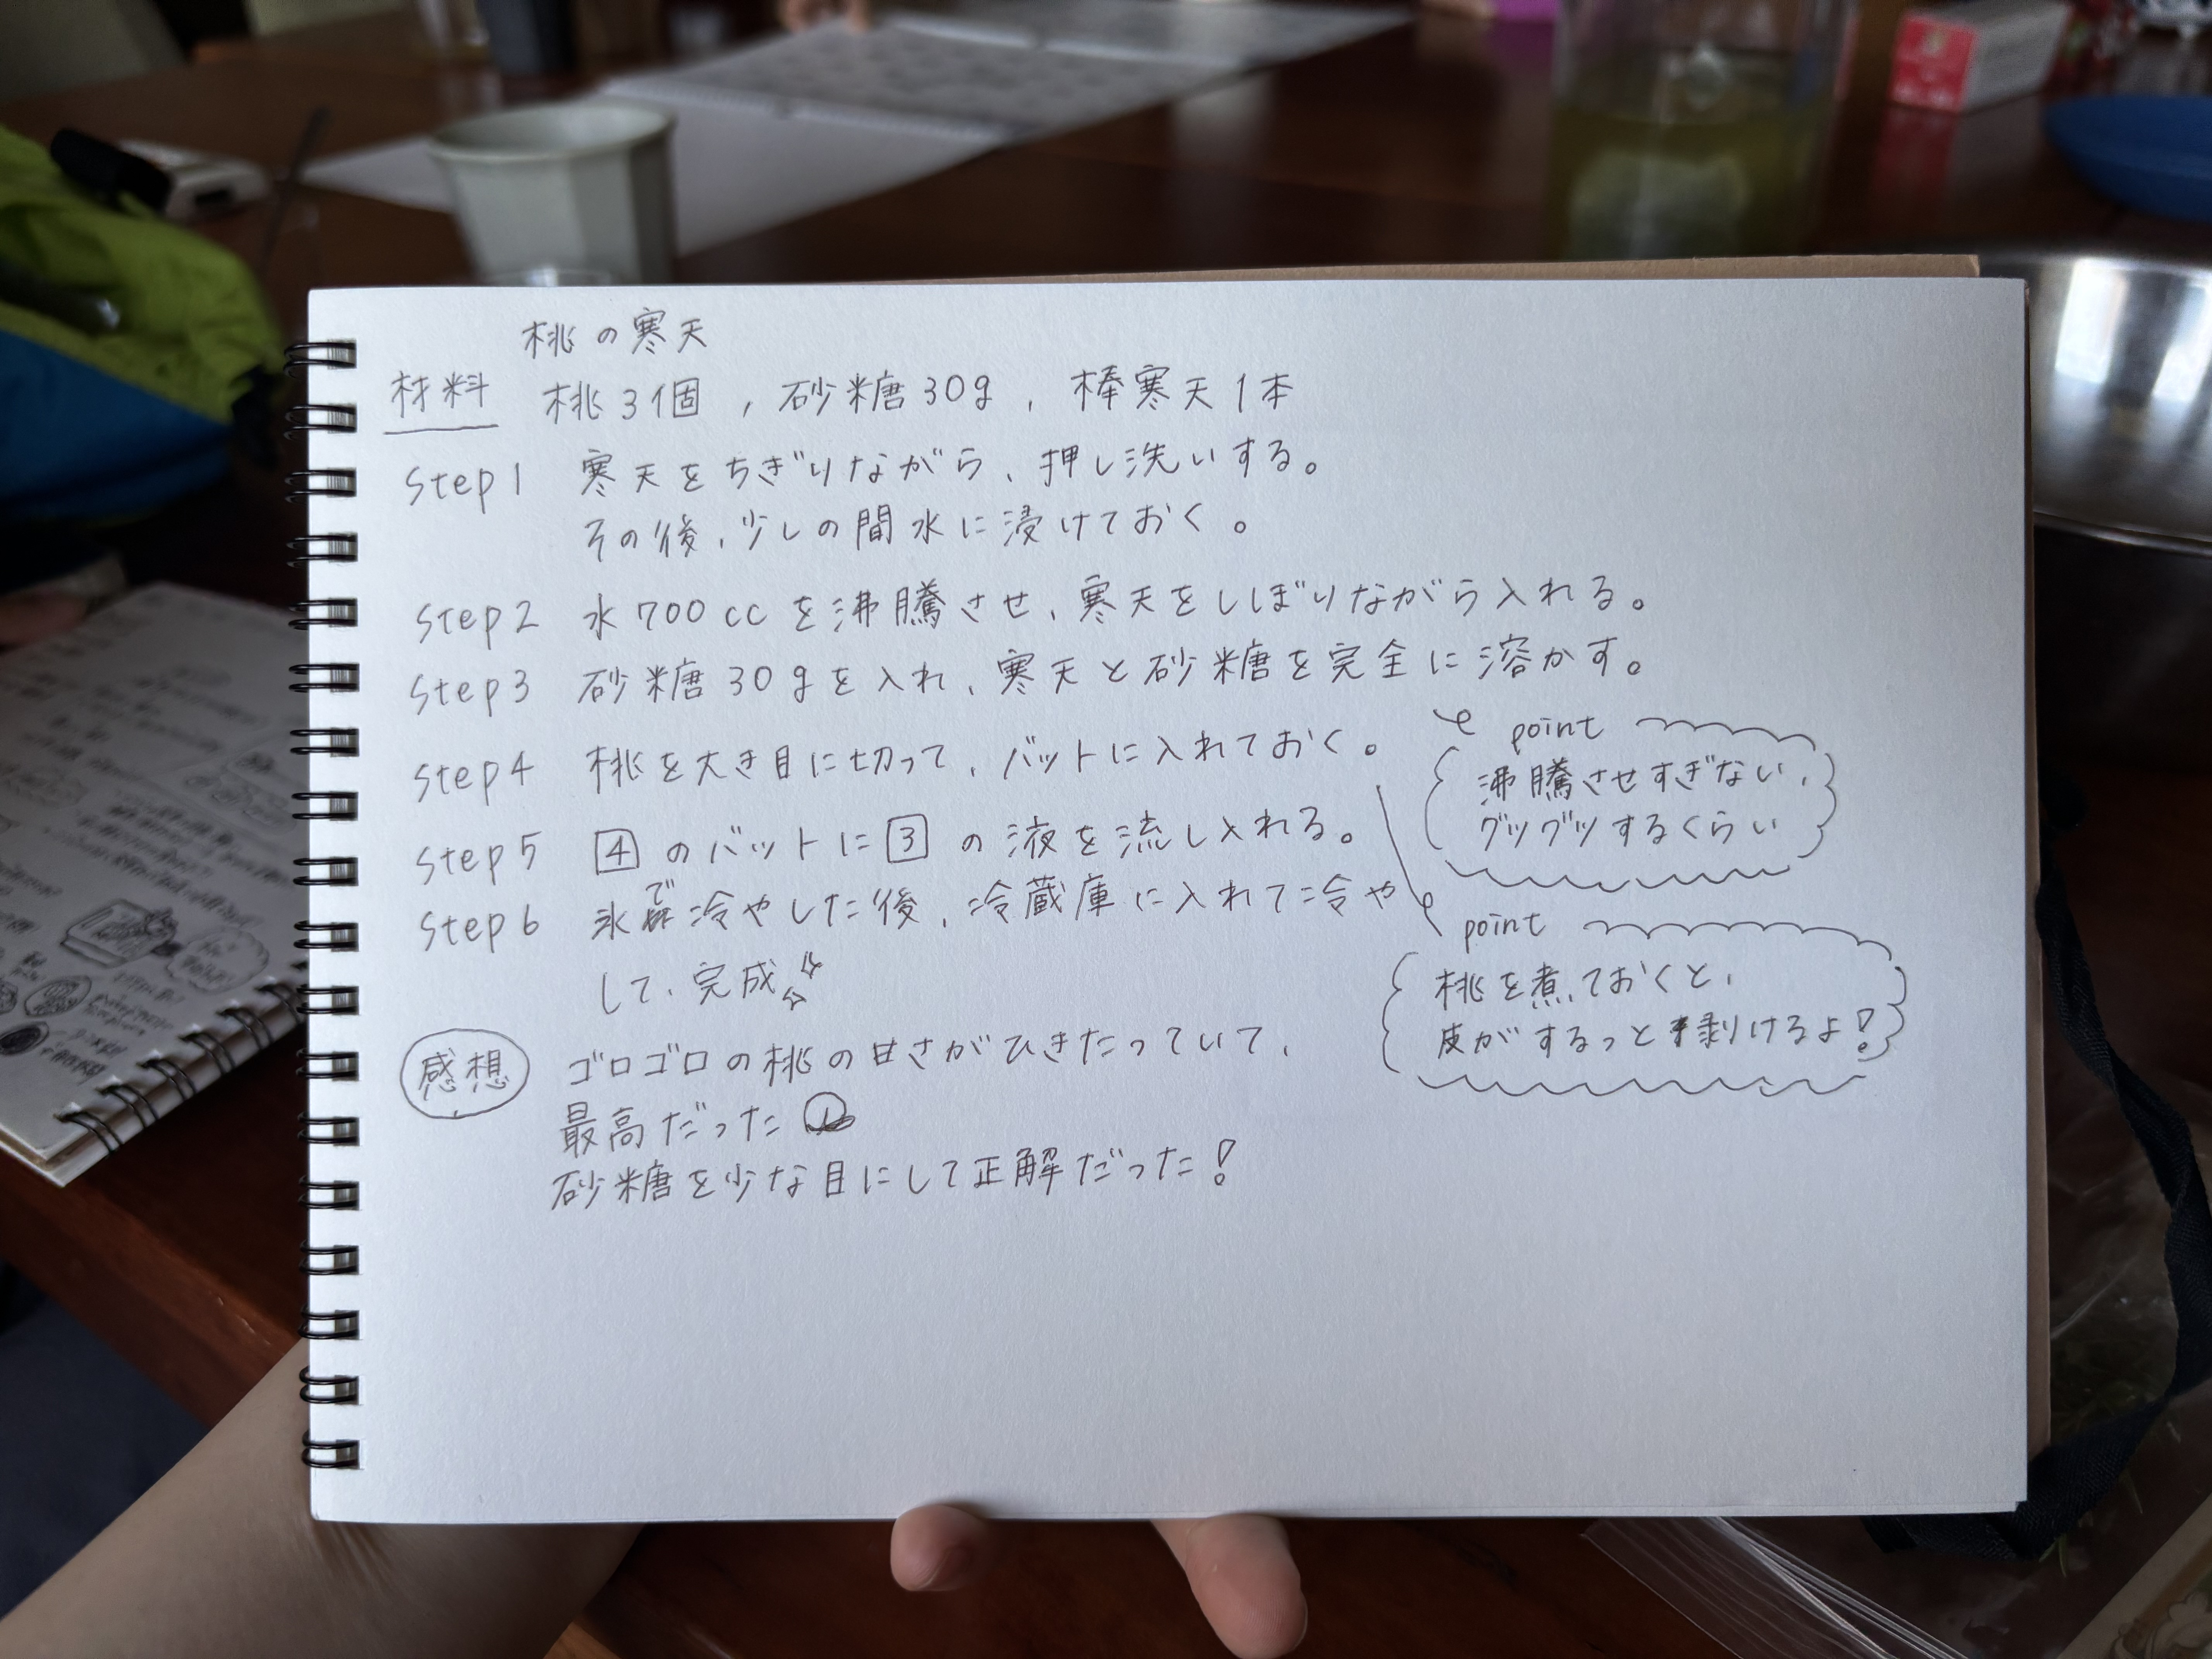 桃の寒天
材料 桃3個 , 砂糖30g , 棒寒天1本
Step1 寒天をちぎりながら、押し洗いする。
その後、少しの間水に浸けておく。
Step2 水700ccを沸騰させ、寒天をしぼりながら入れる。
Step3 砂糖30gを入れ、寒天と砂糖を完全に溶かす。
point
沸騰させすぎない、
グツグツするくらい
Step4 桃を大き目に切って、バットに入れておく。
point
桃を煮ておくと、
皮がするっと剥けるよ!
Step5 4のバットに3の液を流し入れる。
Step6 氷で冷やした後、冷蔵庫に入れて冷や
して、完成
感想 ゴロゴロの桃の甘さがひきたっていて、
最高だった
砂糖を少な目にして正解だった!